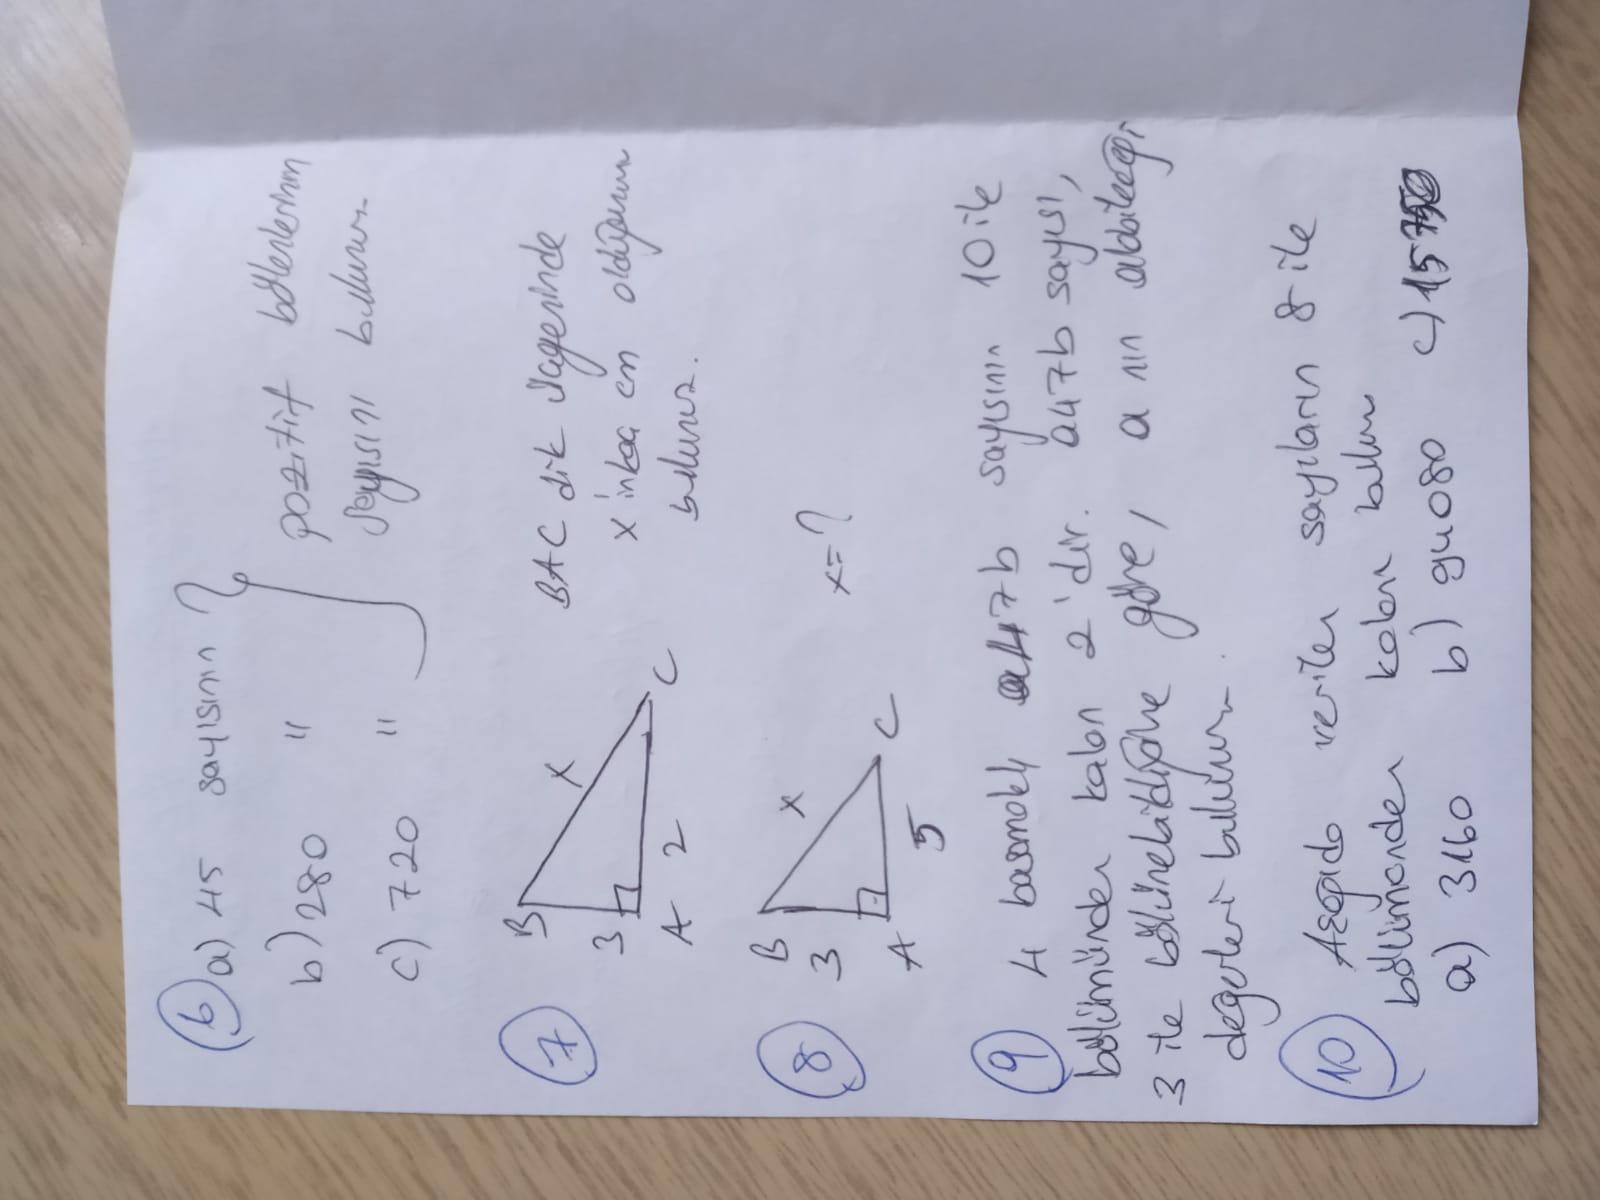 6 a) 45 sayısının
b) 280 "
c) 720 "
pozitif bölenlerinin
sayısını bulunuz.
7 BAC dik üçgeninde
x in kaç cm olduğunu
bulunuz.
B
3
x
A 2 C
8 x=?
B
3
x
A 5 C
9 4 basamaklı a47b sayısının 10 ile
bölümünden kalan 2'dir. a47b sayısı,
3 ile bölünebildiğine göre, a nın alabileceği
değerleri bulunuz.
10 Aşağıda verilen sayıların 8 ile
bölümünden kalanı bulun
a) 3160 b) 94080 c) 157